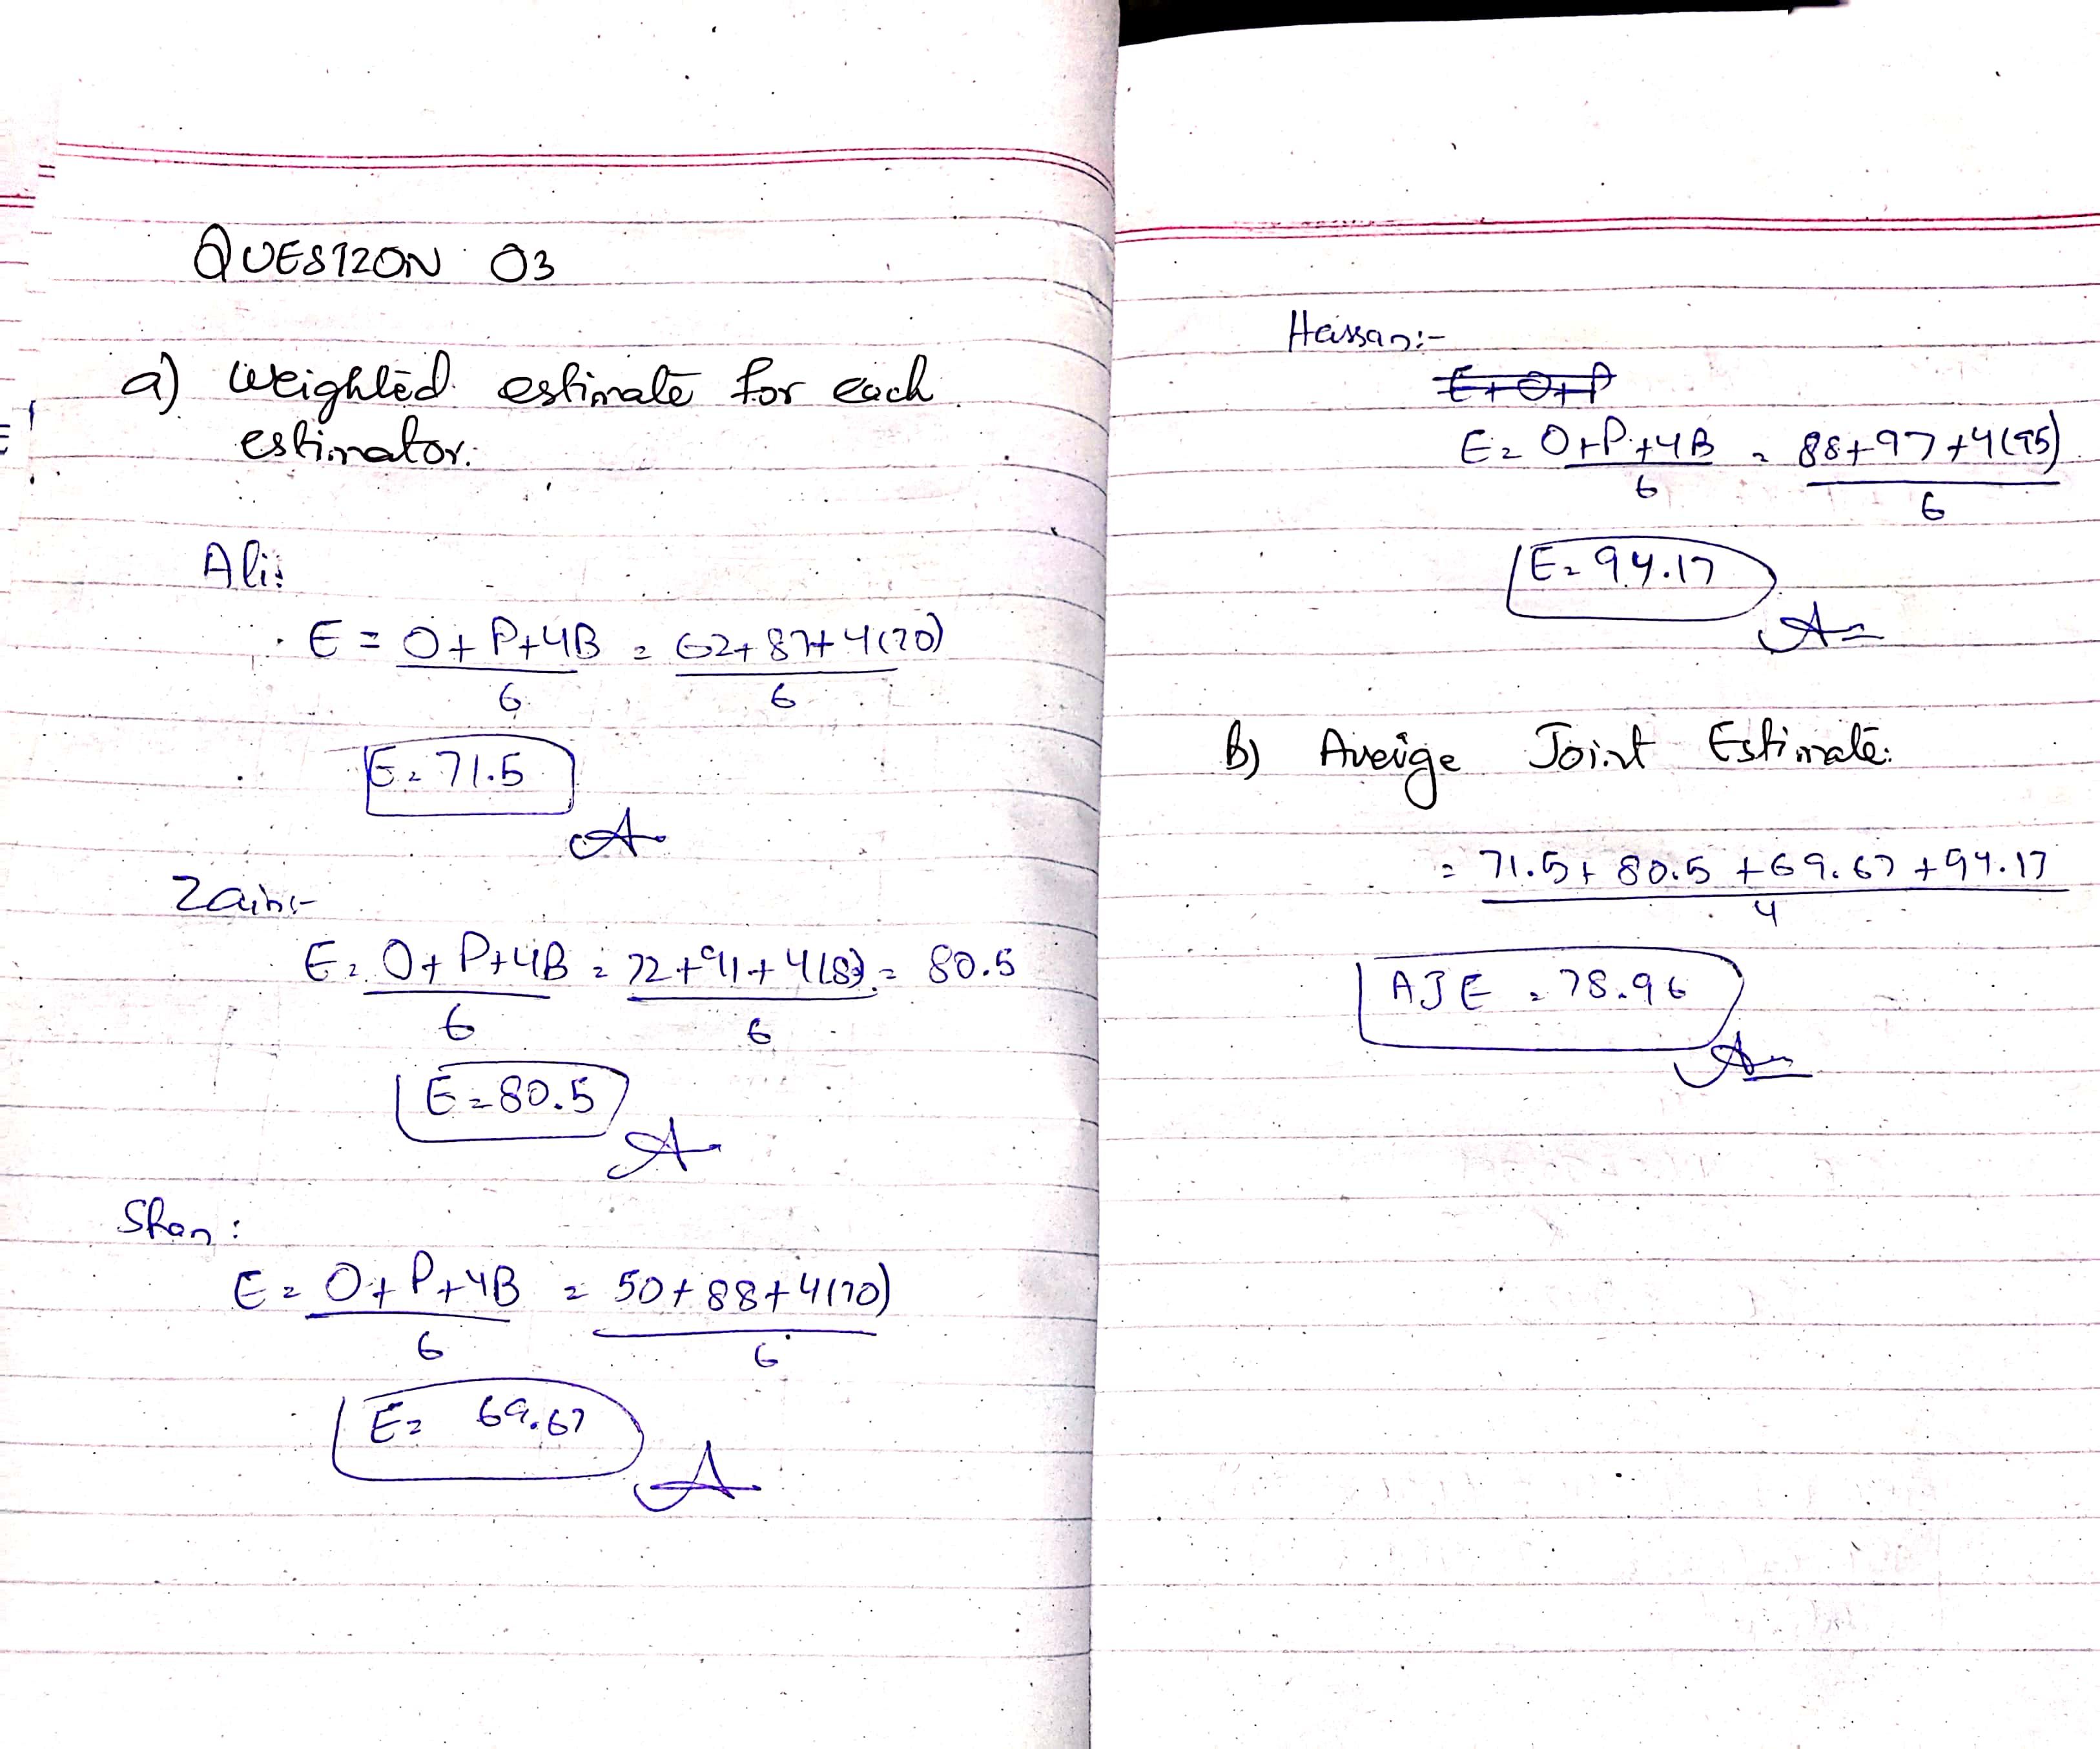 QUESTION 03
a) Weighted estimate for each
estimator.
Ali:
E = O+P+4B = 62+87+4(70)
6 6
E = 71.5
Zain:-
E = O+P+4B = 72+91+4(8 = 80.5
6 6
E = 80.5
Shan:
E = O+P+4B = 50+88+4(70)
6 6
E = 69.67
Hassan:-
E+O+P
E = O+P+4B = 88+97+4(95)
6 6
E = 94.17
b) Averige Joint Estimate:
= 71.5+80.5+69.67+94.17
4
AJE = 78.96